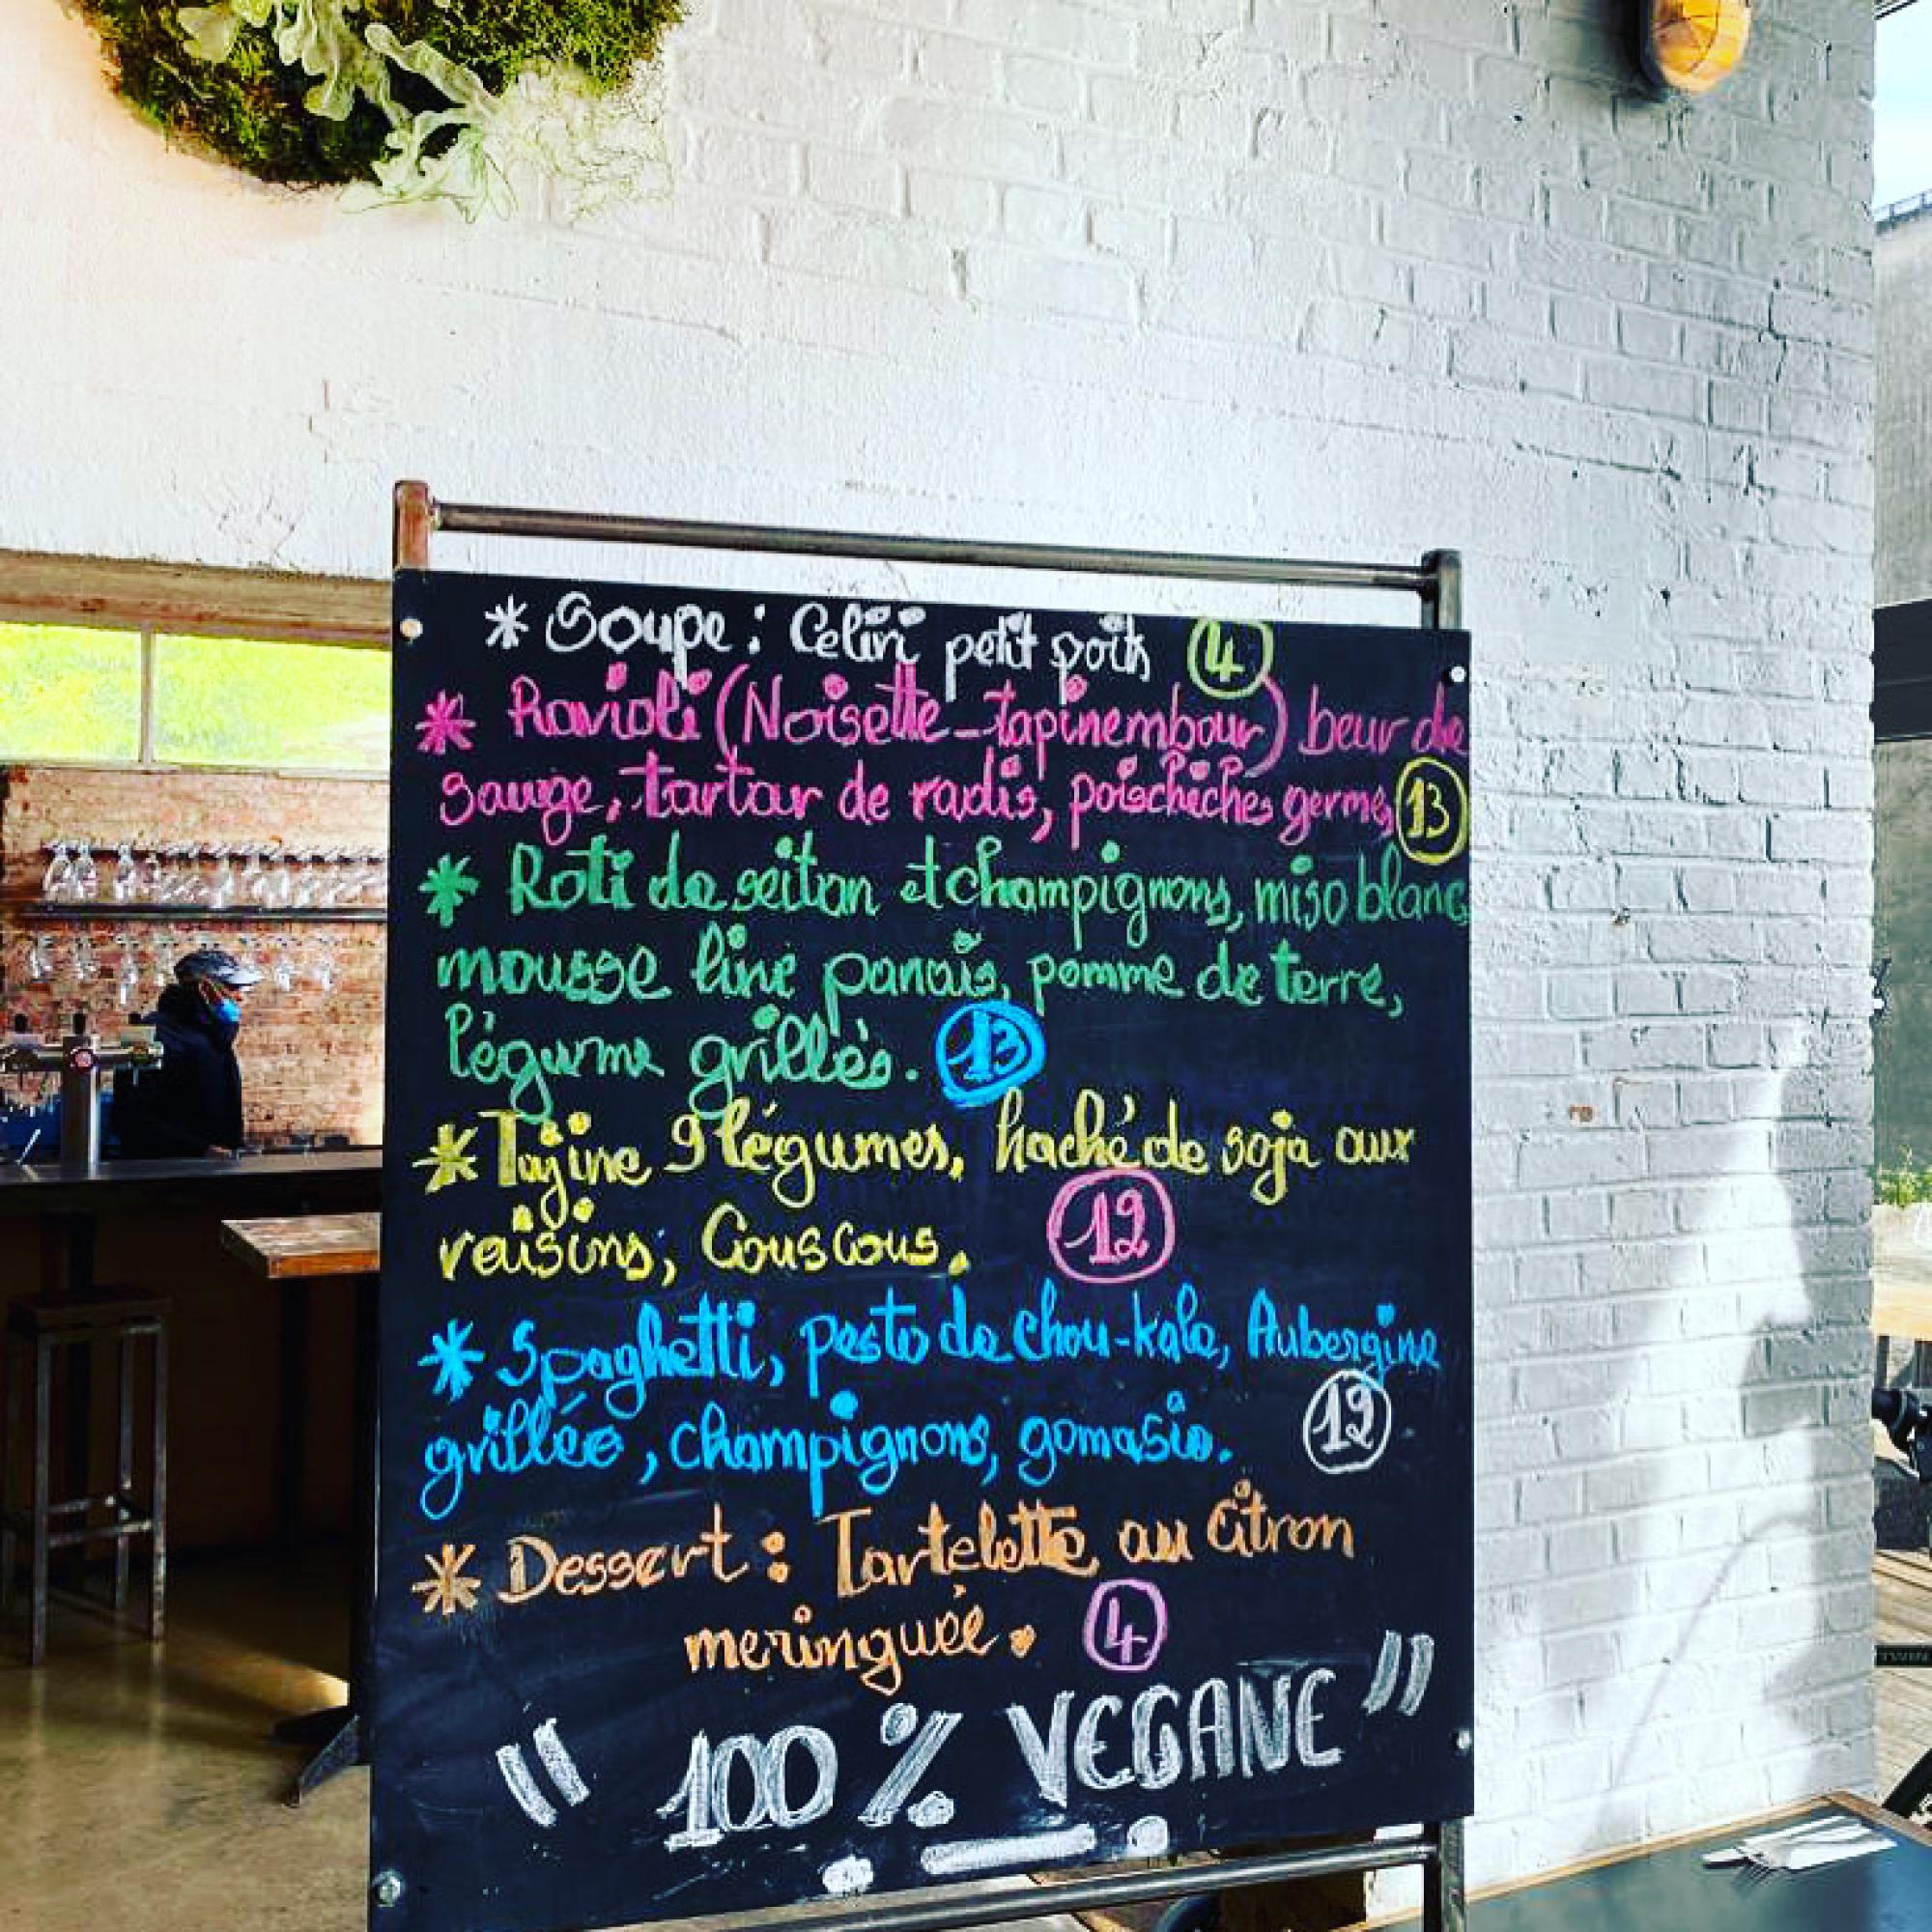 * Soupe : Celiri petit pois 4
* Ravioli (Noisette-topinembour) beur de
sauge, tartar de radis, poischiches germés 13
* Roti de seitan et champignons, miso blanc,
mousse line panais, pomme de terre,
légume grillés. 13
* Tajine 9 légumes, haché de soja aux
raisins, Couscous. 12
* Spaghetti, pesto de chou-kale, Aubergine
grillée, champignons, gomasio. 12
* Dessert : Tartelette au Citron
meringuée. 4
" 100 % VEGANE "
TWIN